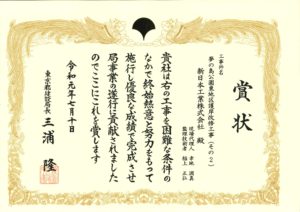 賞状
工事件名
夢の島公園東地区護岸改修工事(その2)
新日本工業株式会社 殿
現場代理人
監理技術者
貴社は右の工事を困難な条件の
なかで終始熱意と努力をもって
施行し優良な成績で完成させ
局事業の遂行に貢献されました
のでここにこれを賞します
令和元年七月十日
東京都建設局長 三浦 隆